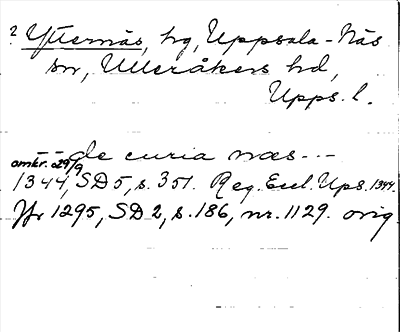 ? Ytternäs, hg, Uppsala-Näs
sn, Ulleråkers hd,
Upps. l.
-- de curia næs ---
omkr. 29/9
1344, SD 5, s. 351. Reg. Eccl. Ups. 1344.
Jfr 1295, SD 2, s. 186, nr. 1129. orig